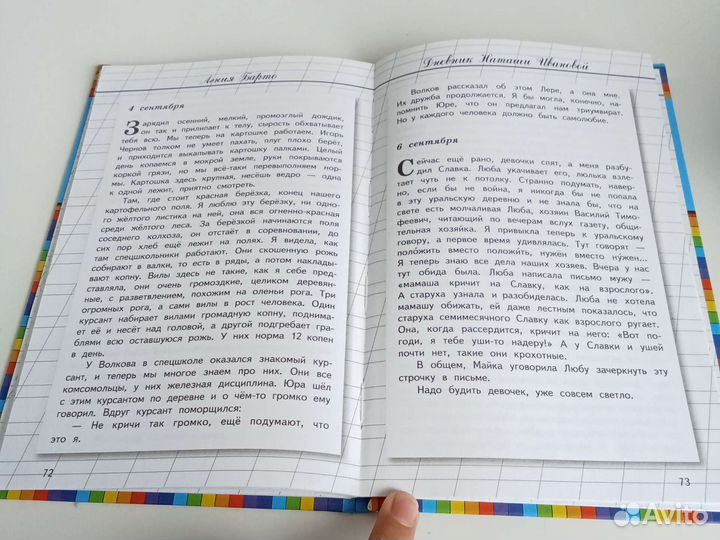 Агния Барто
4 сентября
Зарядил осенний, мелкий, промозглый дождик,
он так и прилипает к телу, сырость обхватывает
тебя всю. Мы теперь на картошке работаем. Игорь
Чернов толком не умеет пахать, плуг плохо берёт,
и приходится выкапывать картошку палками. Целый
день копаемся в мокрой земле, руки покрываются
коркой грязи, но мы всё-таки перевыполняем нор-
мы. Картошка здесь крупная, несёшь ведро — одна
к одной лежит, приятно смотреть.
Там, где стоит красная берёзка, конец нашего
картофельного поля. Я люблю эту берёзку, ни одно-
го жёлтого листика на ней, она вся огненно-красная
среди жёлтого леса. За берёзкой начинаются поля
соседнего колхоза, он отстаёт в соревновании, до
сих пор хлеб ещё лежит на полях. Я видела, как
там спецшкольники работали. Они скошенную рожь
собирают в валки, то есть в ряды, а потом наклады-
вают в копны. Вилы здесь не такие, как я себе пред-
ставляла, они очень громоздкие, целиком деревян-
ные, с разветвлением, похожим на оленьи рога. Три
огромных рога, а сами вилы в рост человека. Один
курсант набирает вилами громадную копну, поднима-
ет её и несёт над головой, а другой подгребает гра-
блями всю оставшуюся рожь. У них норма 12 копен
в день.
У Волкова в спецшколе оказался знакомый кур-
сант, и теперь мы многое знаем про них. Они все
комсомольцы, у них железная дисциплина. Юра шёл
с этим курсантом по деревне и о чём-то громко ему
говорил. Вдруг курсант поморщился:
— Не кричи так громко, ещё подумают, что
это я.
72
Дневник Наташи Ивановой
Волков рассказал об этом Лере, а она мне.
Их дружба продолжается. Я бы могла, конечно, на-
помнить Юре, что он предлагал нам триумвират.
Но у каждого человека должно быть самолюбие.
6 сентября
Сейчас ещё рано, девочки спят, а меня разбу-
дил Славка. Люба укачивает его, люлька взле-
тает чуть не к потолку. Странно подумать, навер-
но, если бы не война, я никогда бы не попала
в эту уральскую деревню и не знала бы, что на
свете есть молчаливая Люба, хозяин Василий Тимо-
феевич, читающий по вечерам вслух газету, общи-
тельная хозяйка. Я привыкла теперь к уральскому
говору, а первое время удивлялась. Тут говорят —
поло́жить вместо положи́ть, нужён вместо ну́жен...
Я теперь знаю все дела наших хозяев. Вчера у нас
тут обида была. Люба написала письмо мужу —
«мамаша кричит на Славку, как на взрослого».
А старуха узнала и разобиделась. Люба не хотела
мамашу обижать, ей даже лестным показалось, что
старуха семимесячного Славку как взрослого ругает.
Она, когда рассердится, кричит на него: «Вот по-
годи, я тебе уши-то надеру!» А у Славки и ушей
почти нет, такие они крохотные.
В общем, Майка уговорила Любу зачеркнуть эту
строчку в письме.
Надо будить девочек, уже совсем светло.
73
Avito